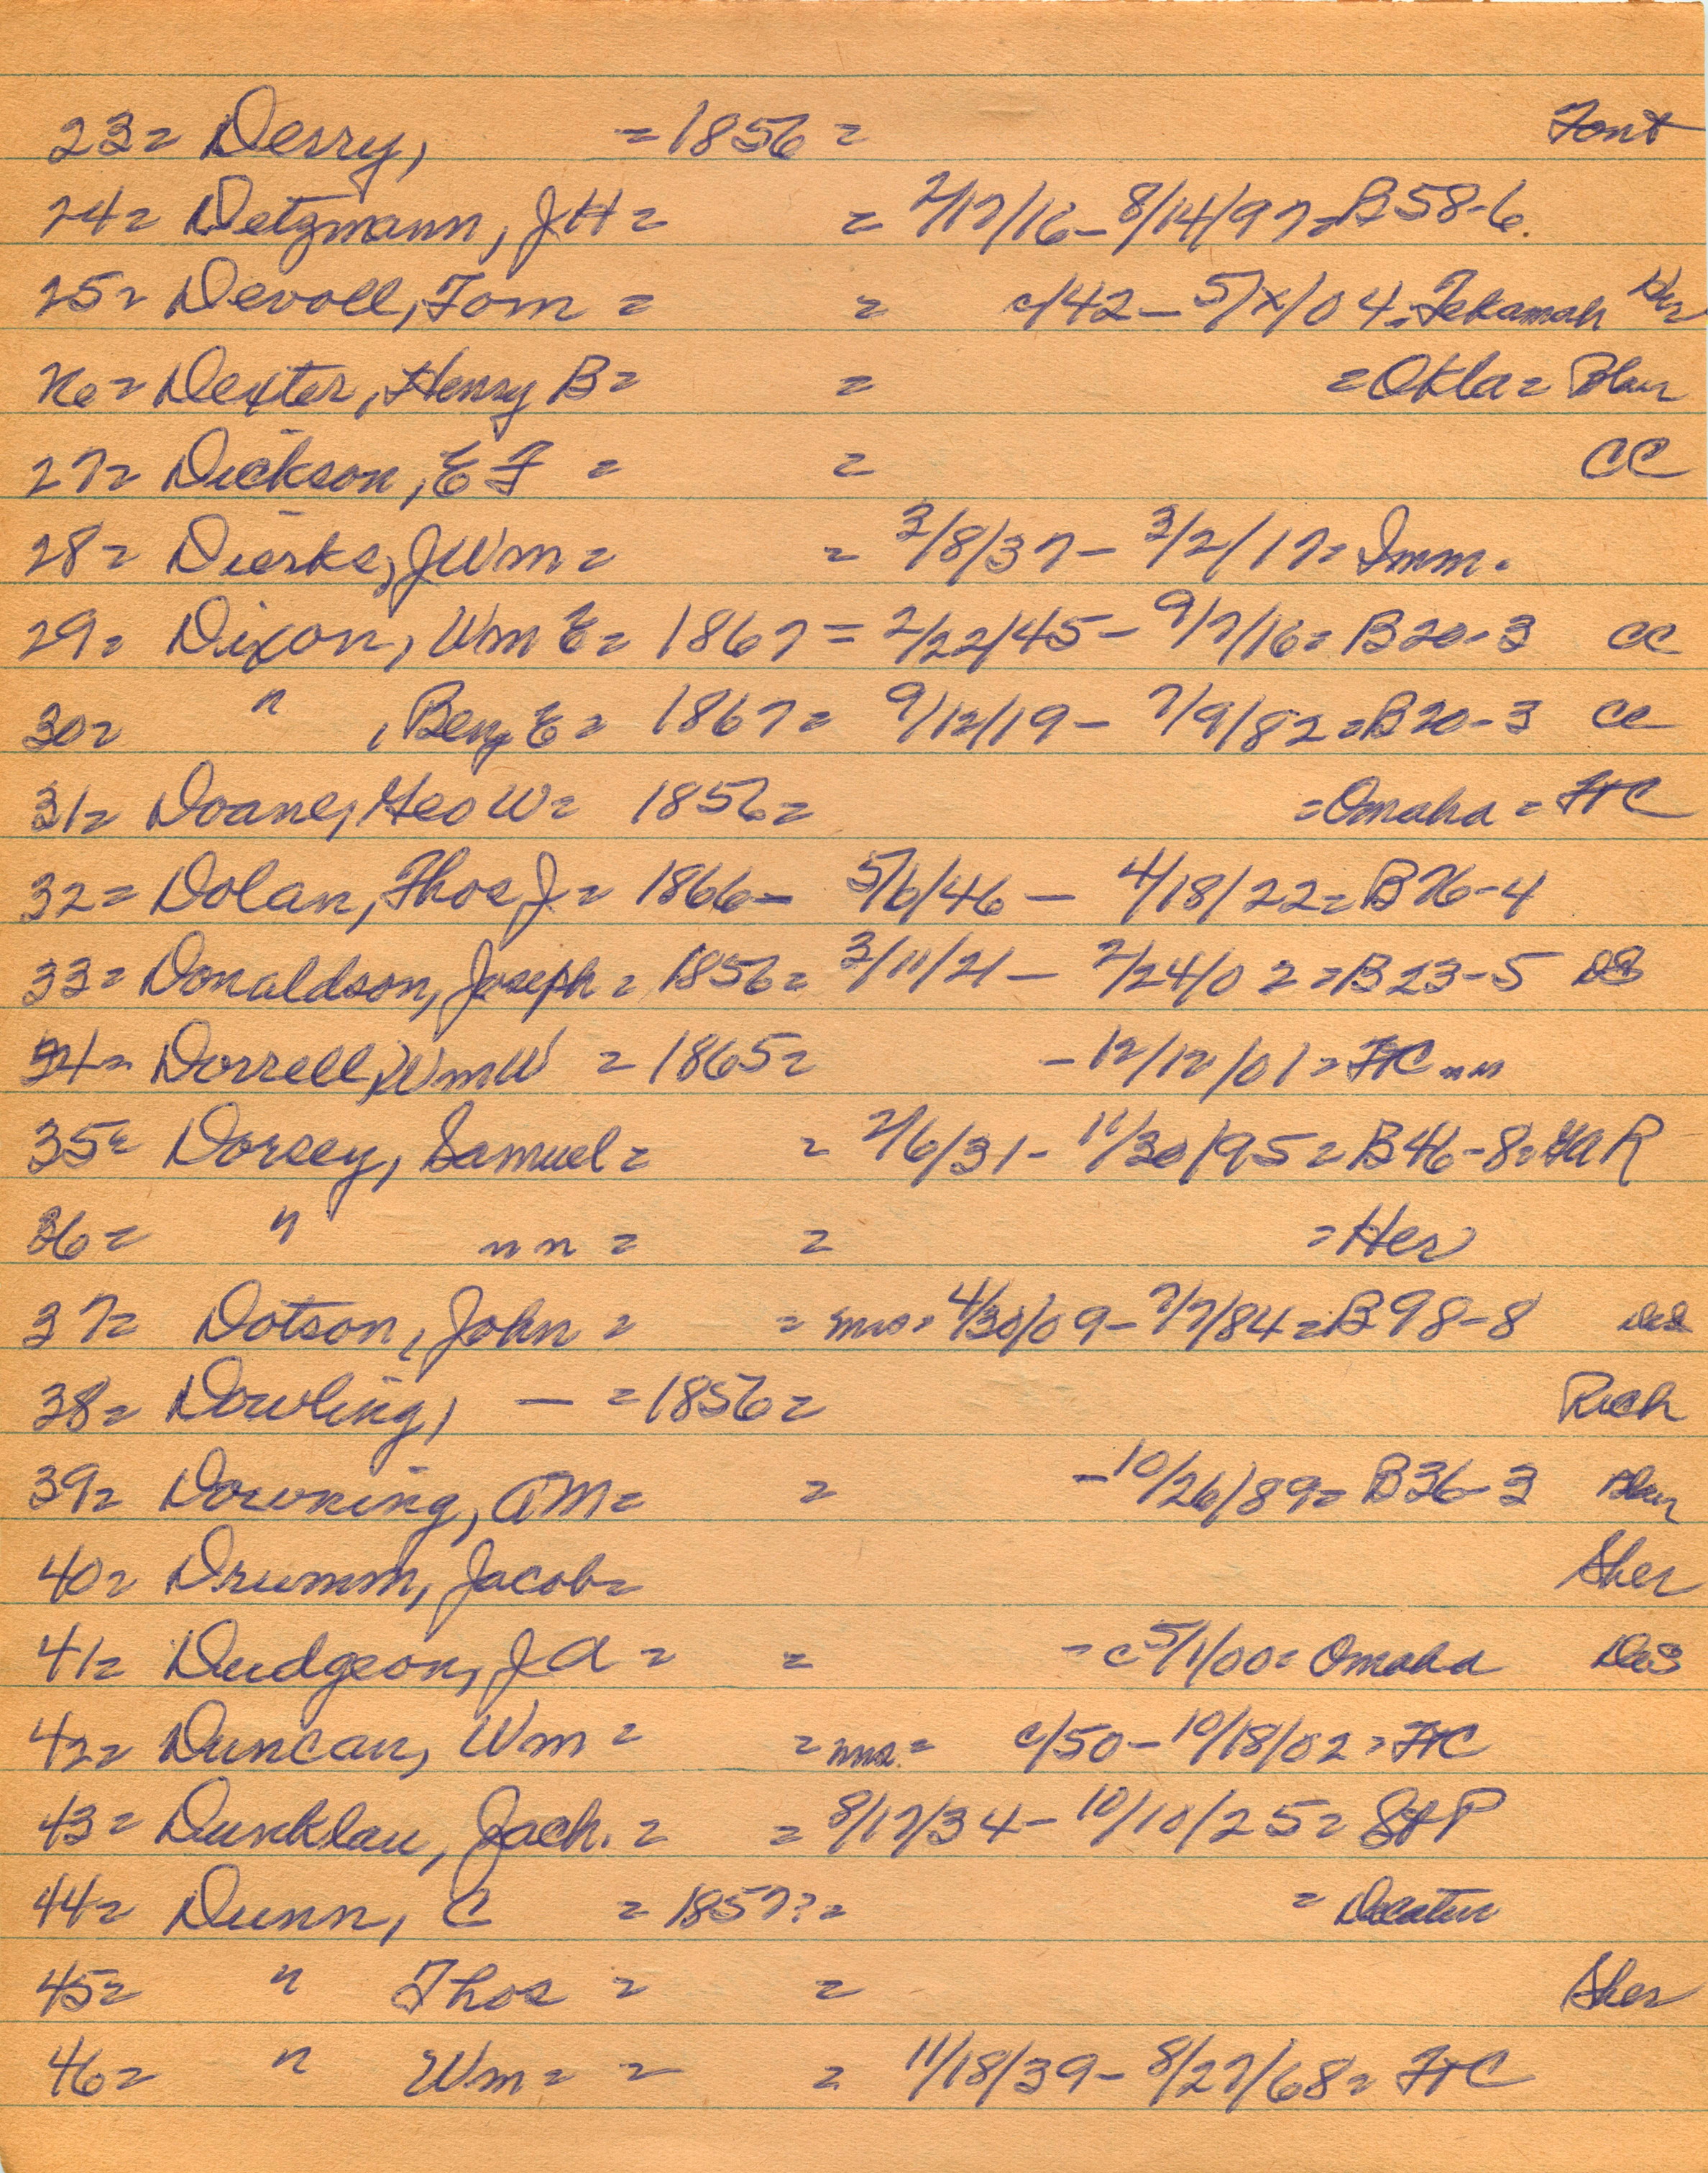 23= Derry, =1856= Font
24= Detzmann, JH= = 2/17/16-8/14/97=B58-6.
25= Devoll, Tom = = c/42-5/x/04=Tekamah Her
26= Dexter, Henry B= = =Okla= Blair
27= Dickson, E F = = CC
28= Dierks, JWm= = 3/8/37- 3/2/17= Imm.
29= Dixon, Wm E= 1867= 2/22/45- 9/7/16= B20-3 CC
30= " , Benj E= 1867= 9/12/19- 7/9/82=B20-3 CC
31= Doane, Geo W= 1856= =Omaha= FtC
32= Dolan, Thos J= 1866- 5/6/46- 4/18/22=B26-4
33= Donaldson, Joseph= 1856= 3/11/21- 2/24/02=B23-5 DS
34= Dorrell, WmW =1865= -12/12/01=FtC nn
35= Dorsey, Samuel= = 2/6/31- 11/30/95=B46-8=GAR
36= " nn = = =Her
37= Dotson, John = = 4/30/09-7/7/84=B98-8 DeS
38= Dowling, - =1856= Rich
39= Downing, AM= = -10/26/89=B36-3 Blair
40= Drumm, Jacob= Sher
41= Dudgeon, JA = = -c5/1/00=Omaha DeS
42= Duncan, Wm = =nns.= c/50-10/18/02=FtC
43= Dunklau, Jach. = = 8/17/34-10/10/25= StP
44= Dunn, C =1857?= = Decatur
45= " Thos = = Sher
46= " Wm= = = 11/18/39-8/27/68=FtC